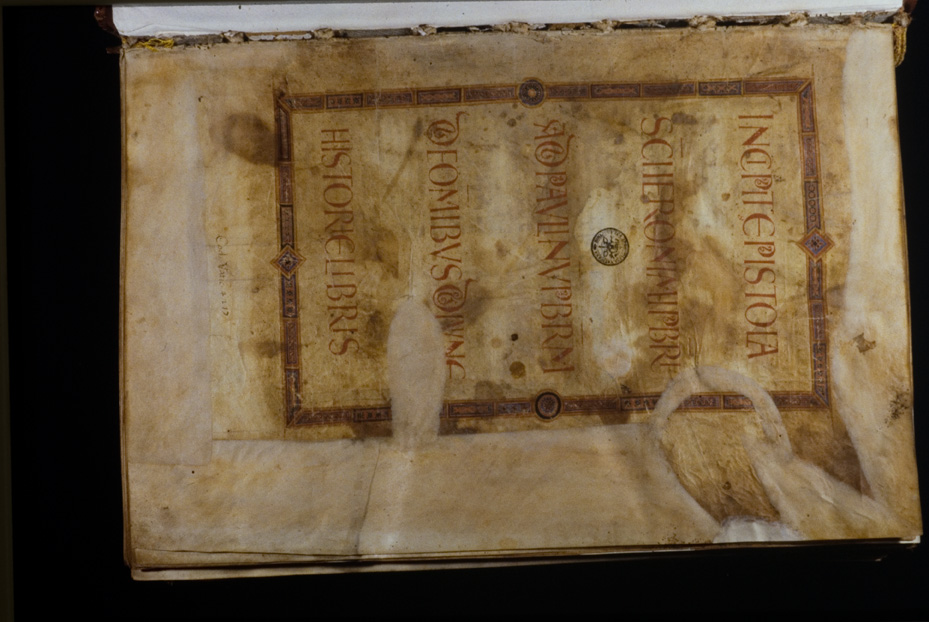 INCIPIT EPISTOLA
SCI HIERONIMI PRBRI
AD PAVLINVM PBRM
DE OMIBVS DIVINE
HISTORIE LIBRIS